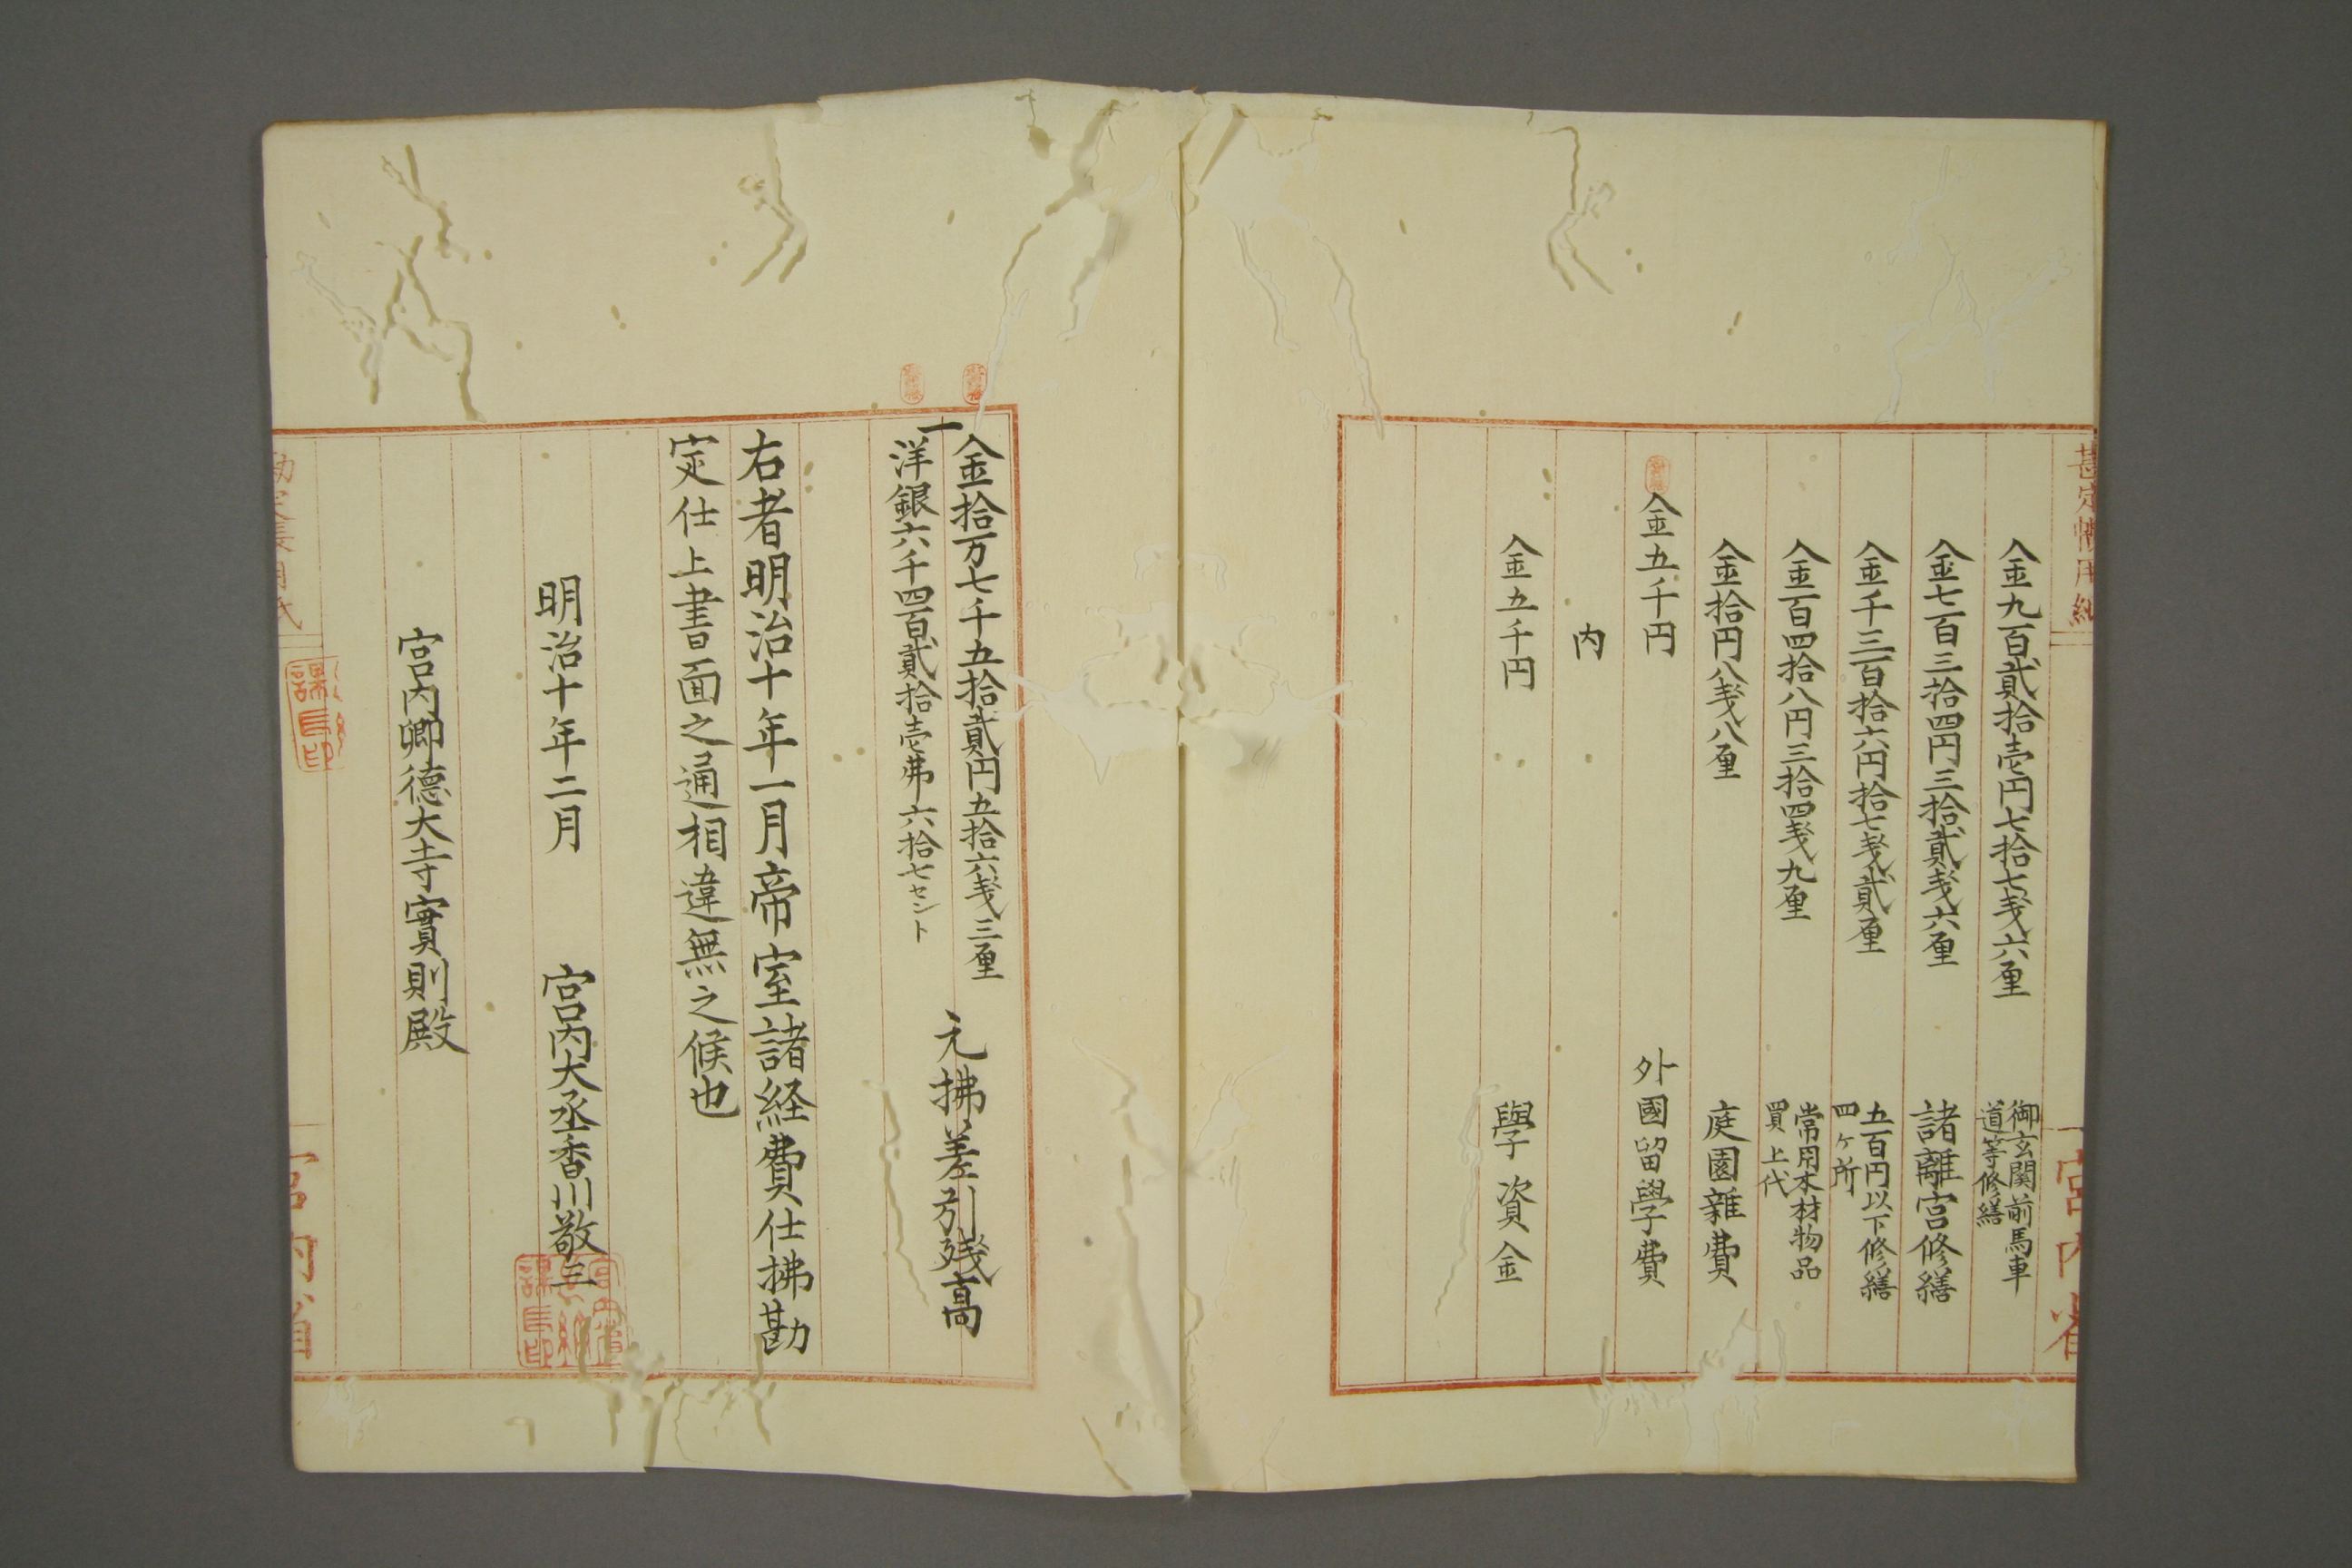 金九百貮拾壱円七拾七戔六厘
御玄関前馬車
道等修繕
金七百三拾四円三拾貮戔六厘
諸離宮修繕
金千三百拾六円拾七戔貮厘
五百円以下修繕
四ヶ所
金百四拾八円三拾四戔九厘
常用木材物品
買上代
金拾円八戔八厘
庭園雜費
金五千円
外國留學費
内
金五千円
學資金
一
金拾万七千五拾貮円五拾六戔三厘
洋銀六千四百貮拾壱弗六拾七セント
元拂差引残高
右者明治十年一月帝室諸経費仕拂勘
定仕上書面之通相違無之候也
明治十年二月
宮内大丞香川敬三
宮内卿德大寺實則殿
宮内省
課長印